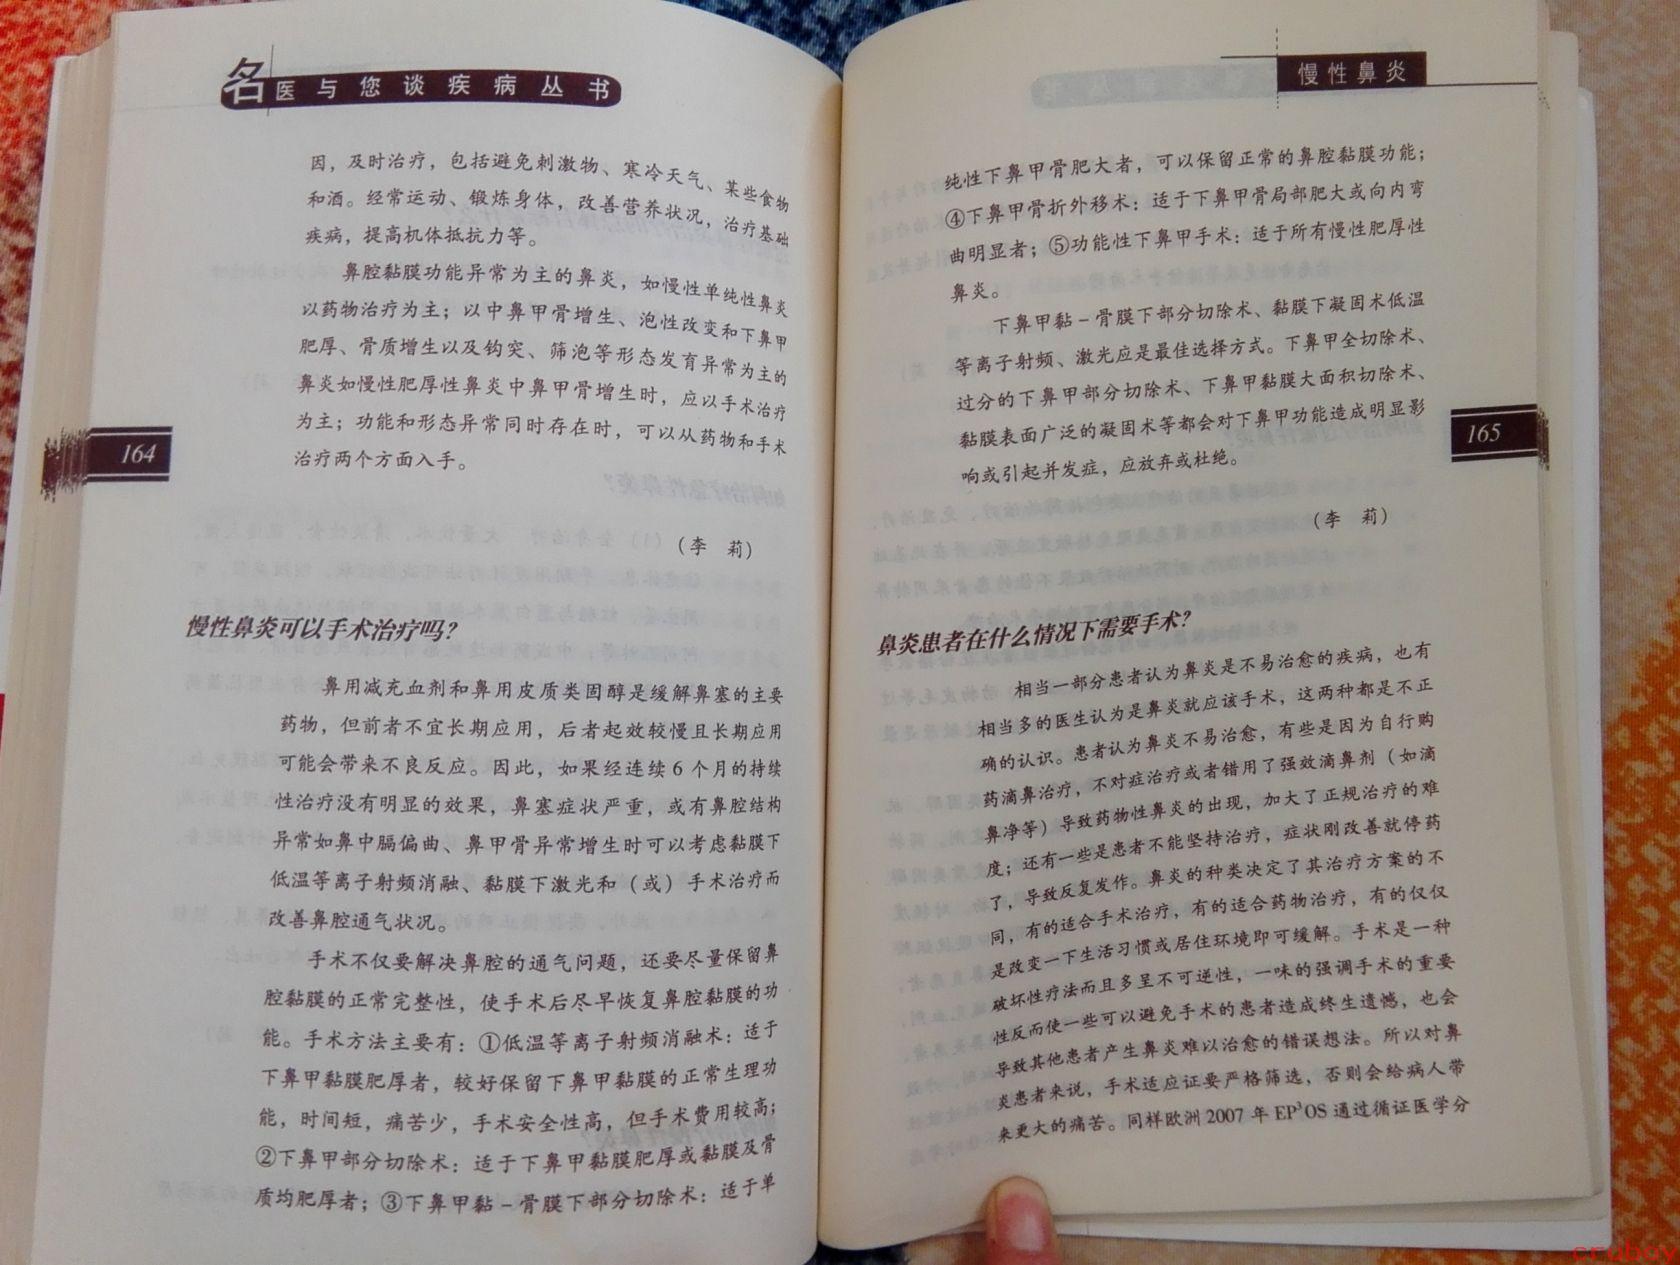 名医与您谈疾病丛书
因，及时治疗，包括避免刺激物、寒冷天气、某些食物
和酒。经常运动、锻炼身体，改善营养状况，治疗基础
疾病，提高机体抵抗力等。
鼻腔黏膜功能异常为主的鼻炎，如慢性单纯性鼻炎
以药物治疗为主；以中鼻甲骨增生、泡性改变和下鼻甲
肥厚、骨质增生以及钩突、筛泡等形态发育异常为主的
鼻炎如慢性肥厚性鼻炎中鼻甲骨增生时，应以手术治疗
为主；功能和形态异常同时存在时，可以从药物和手术
治疗两个方面入手。
164
（李　莉）
慢性鼻炎可以手术治疗吗？
鼻用减充血剂和鼻用皮质类固醇是缓解鼻塞的主要
药物，但前者不宜长期应用，后者起效较慢且长期应用
可能会带来不良反应。因此，如果经连续 6 个月的持续
性治疗没有明显的效果，鼻塞症状严重，或有鼻腔结构
异常如鼻中膈偏曲、鼻甲骨异常增生时可以考虑黏膜下
低温等离子射频消融、黏膜下激光和（或）手术治疗而
改善鼻腔通气状况。
手术不仅要解决鼻腔的通气问题，还要尽量保留鼻
腔黏膜的正常完整性，使手术后尽早恢复鼻腔黏膜的功
能。手术方法主要有：①低温等离子射频消融术：适于
下鼻甲黏膜肥厚者，较好保留下鼻甲黏膜的正常生理功
能，时间短，痛苦少，手术安全性高，但手术费用较高；
②下鼻甲部分切除术：适于下鼻甲黏膜肥厚或黏膜及骨
质均肥厚者；③下鼻甲黏－骨膜下部分切除术：适于单
慢性鼻炎
纯性下鼻甲骨肥大者，可以保留正常的鼻腔黏膜功能；
④下鼻甲骨折外移术：适于下鼻甲骨局部肥大或向内弯
曲明显者；⑤功能性下鼻甲手术：适于所有慢性肥厚性
鼻炎。
下鼻甲黏－骨膜下部分切除术、黏膜下凝固术低温
等离子射频、激光应是最佳选择方式。下鼻甲全切除术、
过分的下鼻甲部分切除术、下鼻甲黏膜大面积切除术、
黏膜表面广泛的凝固术等都会对下鼻甲功能造成明显影
响或引起并发症，应放弃或杜绝。
165
（李　莉）
鼻炎患者在什么情况下需要手术？
相当一部分患者认为鼻炎是不易治愈的疾病，也有
相当多的医生认为是鼻炎就应该手术，这两种都是不正
确的认识。患者认为鼻炎不易治愈，有些是因为自行购
药滴鼻治疗，不对症治疗或者错用了强效滴鼻剂（如滴
鼻净等）导致药物性鼻炎的出现，加大了正规治疗的难
度；还有一些是患者不能坚持治疗，症状刚改善就停药
了，导致反复发作。鼻炎的种类决定了其治疗方案的不
同，有的适合手术治疗，有的适合药物治疗，有的仅仅
是改变一下生活习惯或居住环境即可缓解。手术是一种
破坏性疗法而且多呈不可逆性，一味的强调手术的重要
性反而使一些可以避免手术的患者造成终生遗憾，也会
导致其他患者产生鼻炎难以治愈的错误想法。所以对鼻
炎患者来说，手术适应证要严格筛选，否则会给病人带
来更大的痛苦。同样欧洲 2007 年 EP³OS 通过循证医学分